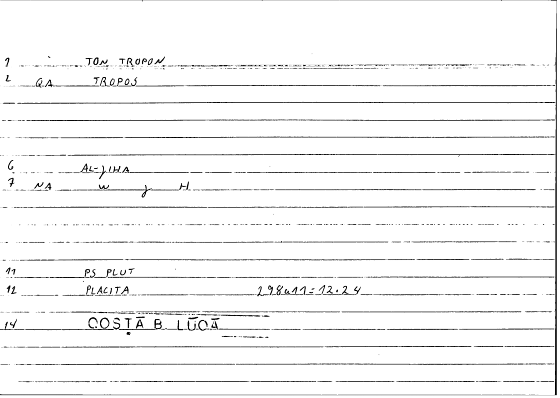 1 TON TROPON
2 QA TROPOS
6 AL-JIHA
7 NA W J H
11 PS PLUT
12 PLACITA 298a11=12.24
14 COSṬĀ B. LŪQĀ